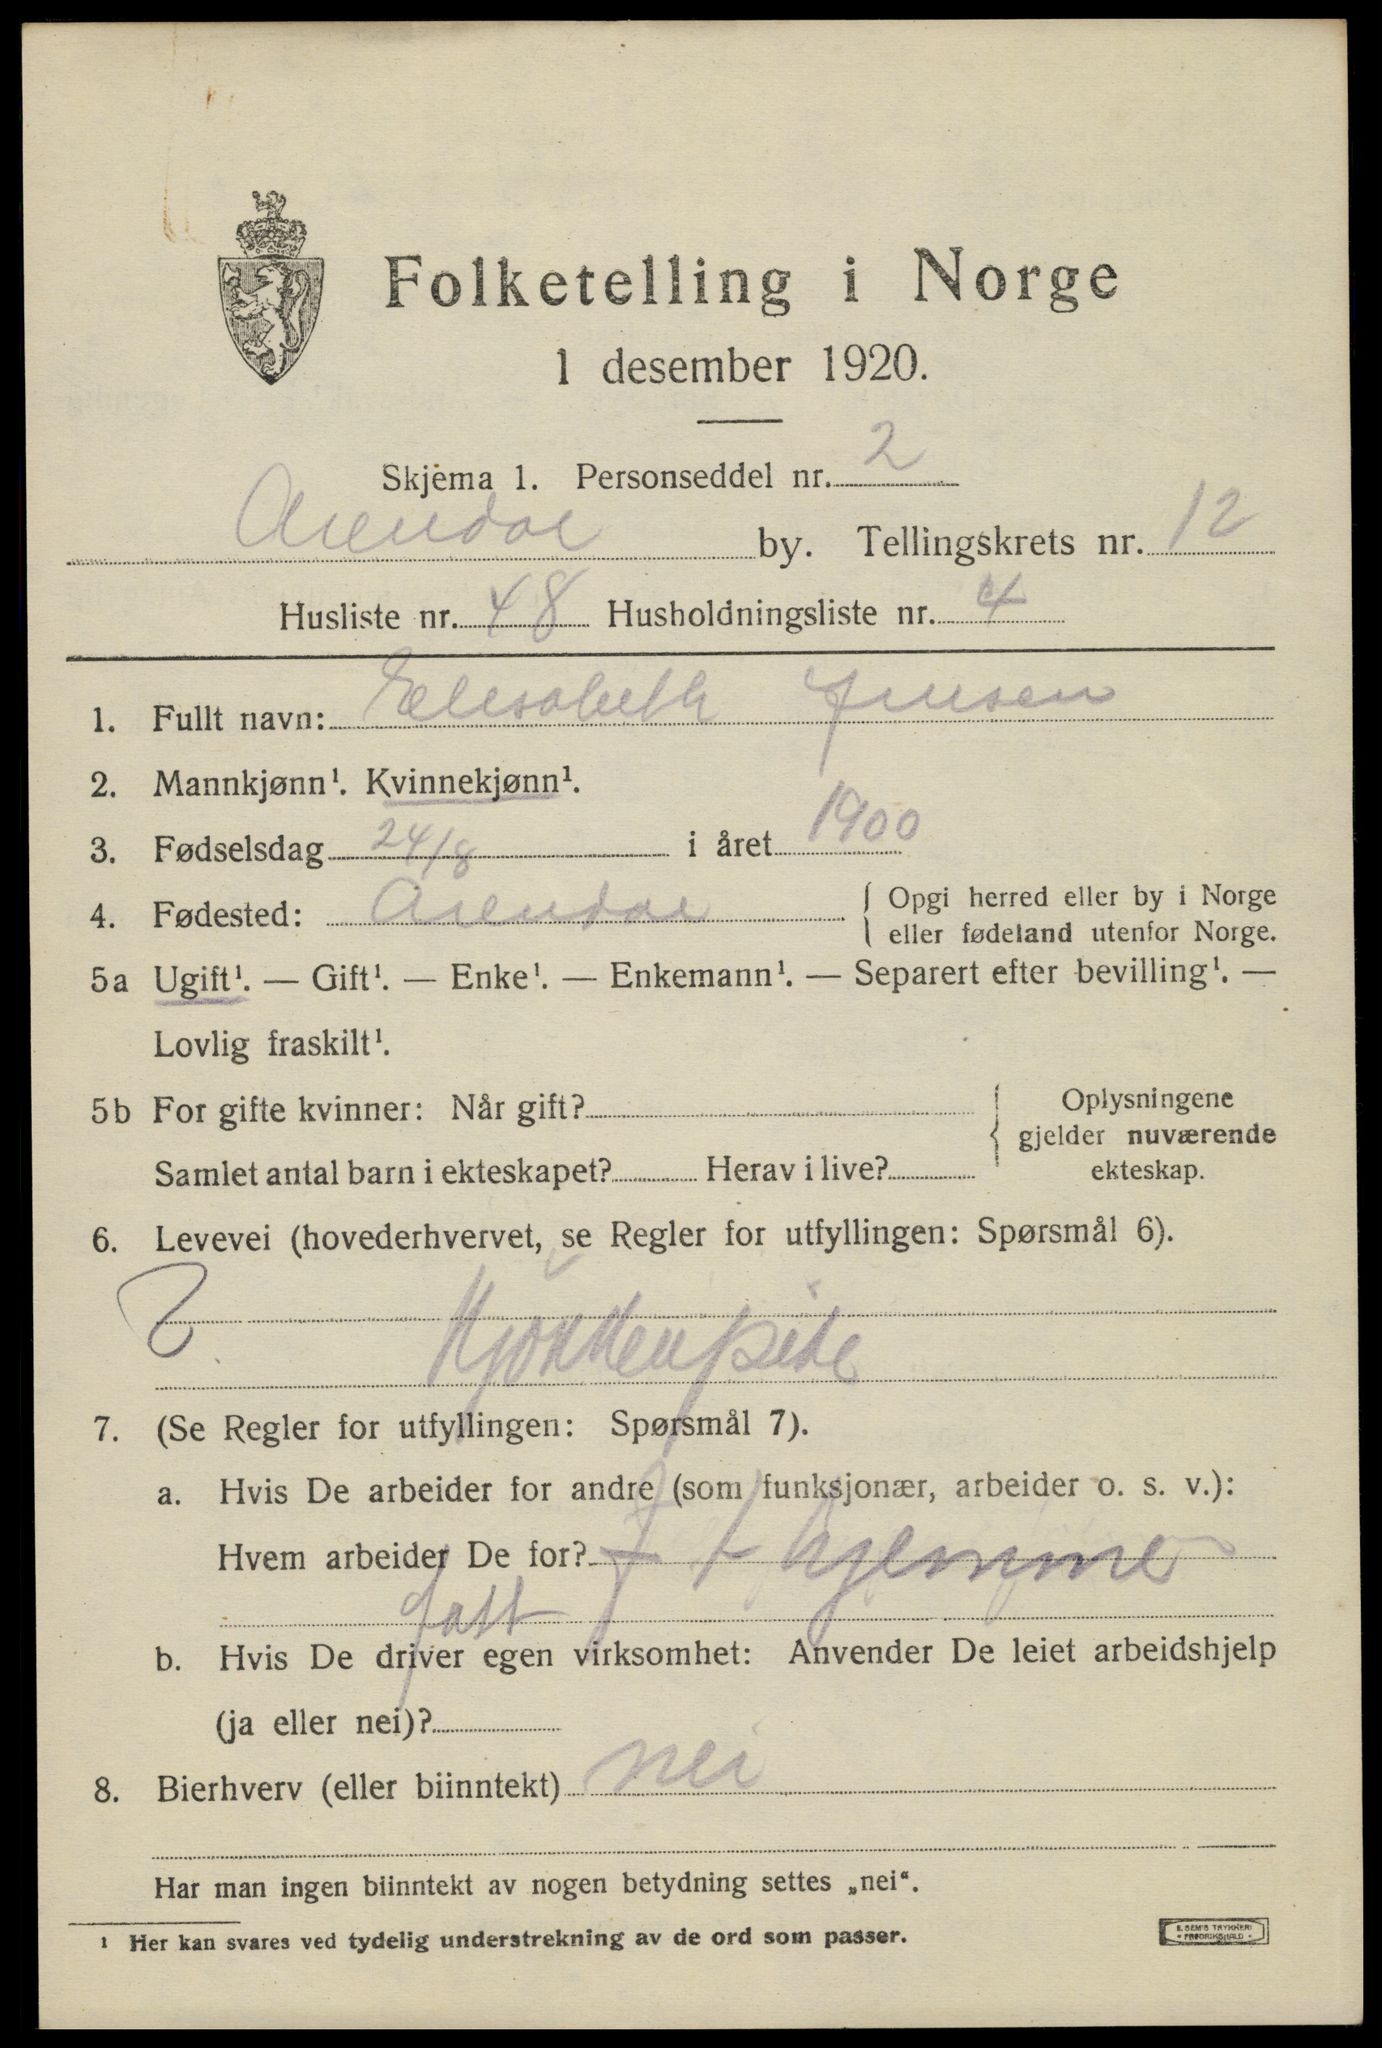 Folketelling i Norge
1 desember 1920.
Skjema 1. Personseddel nr. 2
Arendal by. Tellingskrets nr. 12
Husliste nr. 48 Husholdningsliste nr. 4
1. Fullt navn: Elisabeth Jensen
2. Mannkjønn¹. Kvinnekjønn¹.
3. Fødselsdag 24/8 i året 1900
4. Fødested: Arendal { Opgi herred eller by i Norge
eller fødeland utenfor Norge.
5a Ugift¹. — Gift¹. — Enke¹. — Enkemann¹. — Separert efter bevilling¹. —
Lovlig fraskilt¹.
5b For gifte kvinner: Når gift?
Samlet antal barn i ekteskapet? Herav i live?
{ Oplysningene
gjelder nuværende
ekteskap.
6. Levevei (hovederhvervet, se Regler for utfyllingen: Spørsmål 6).
Kjøkkenpike
7. (Se Regler for utfyllingen: Spørsmål 7).
a. Hvis De arbeider for andre (som funksjonær, arbeider o. s. v.):
Hvem arbeider De for? hjemme
b. Hvis De driver egen virksomhet: Anvender De leiet arbeidshjelp
(ja eller nei)?
8. Bierhverv (eller biinntekt) nei
Har man ingen biinntekt av nogen betydning settes „nei“.
¹ Her kan svares ved tydelig understrekning av de ord som passer.
E. SEM'S TRYKKERI
• FREDRIKSHALD •